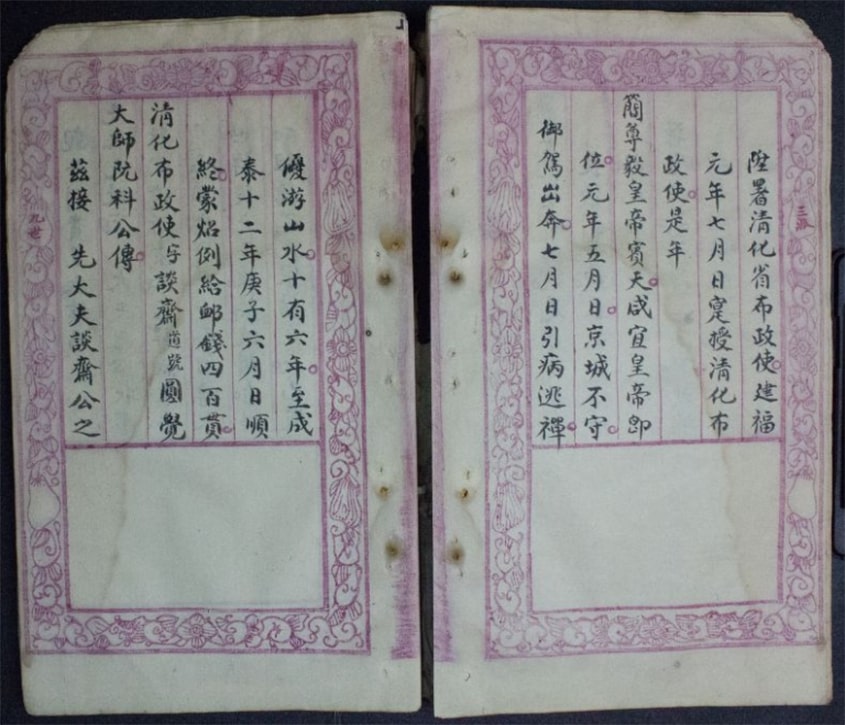 三派
陞署清化省布政使建福
元年七月日寔授清化布
政使是年
簡尊毅皇帝賓天咸宜皇帝即
位元年五月日京城不守
御駕出奔七月日引病逃禪
優游山水十有六年至成
泰十二年庚子六月日順
終蒙炤例給卹錢四百貫
清化布政使字談齋道號圓覺
大師阮科公傳
茲接 先大夫談齋公之
九世